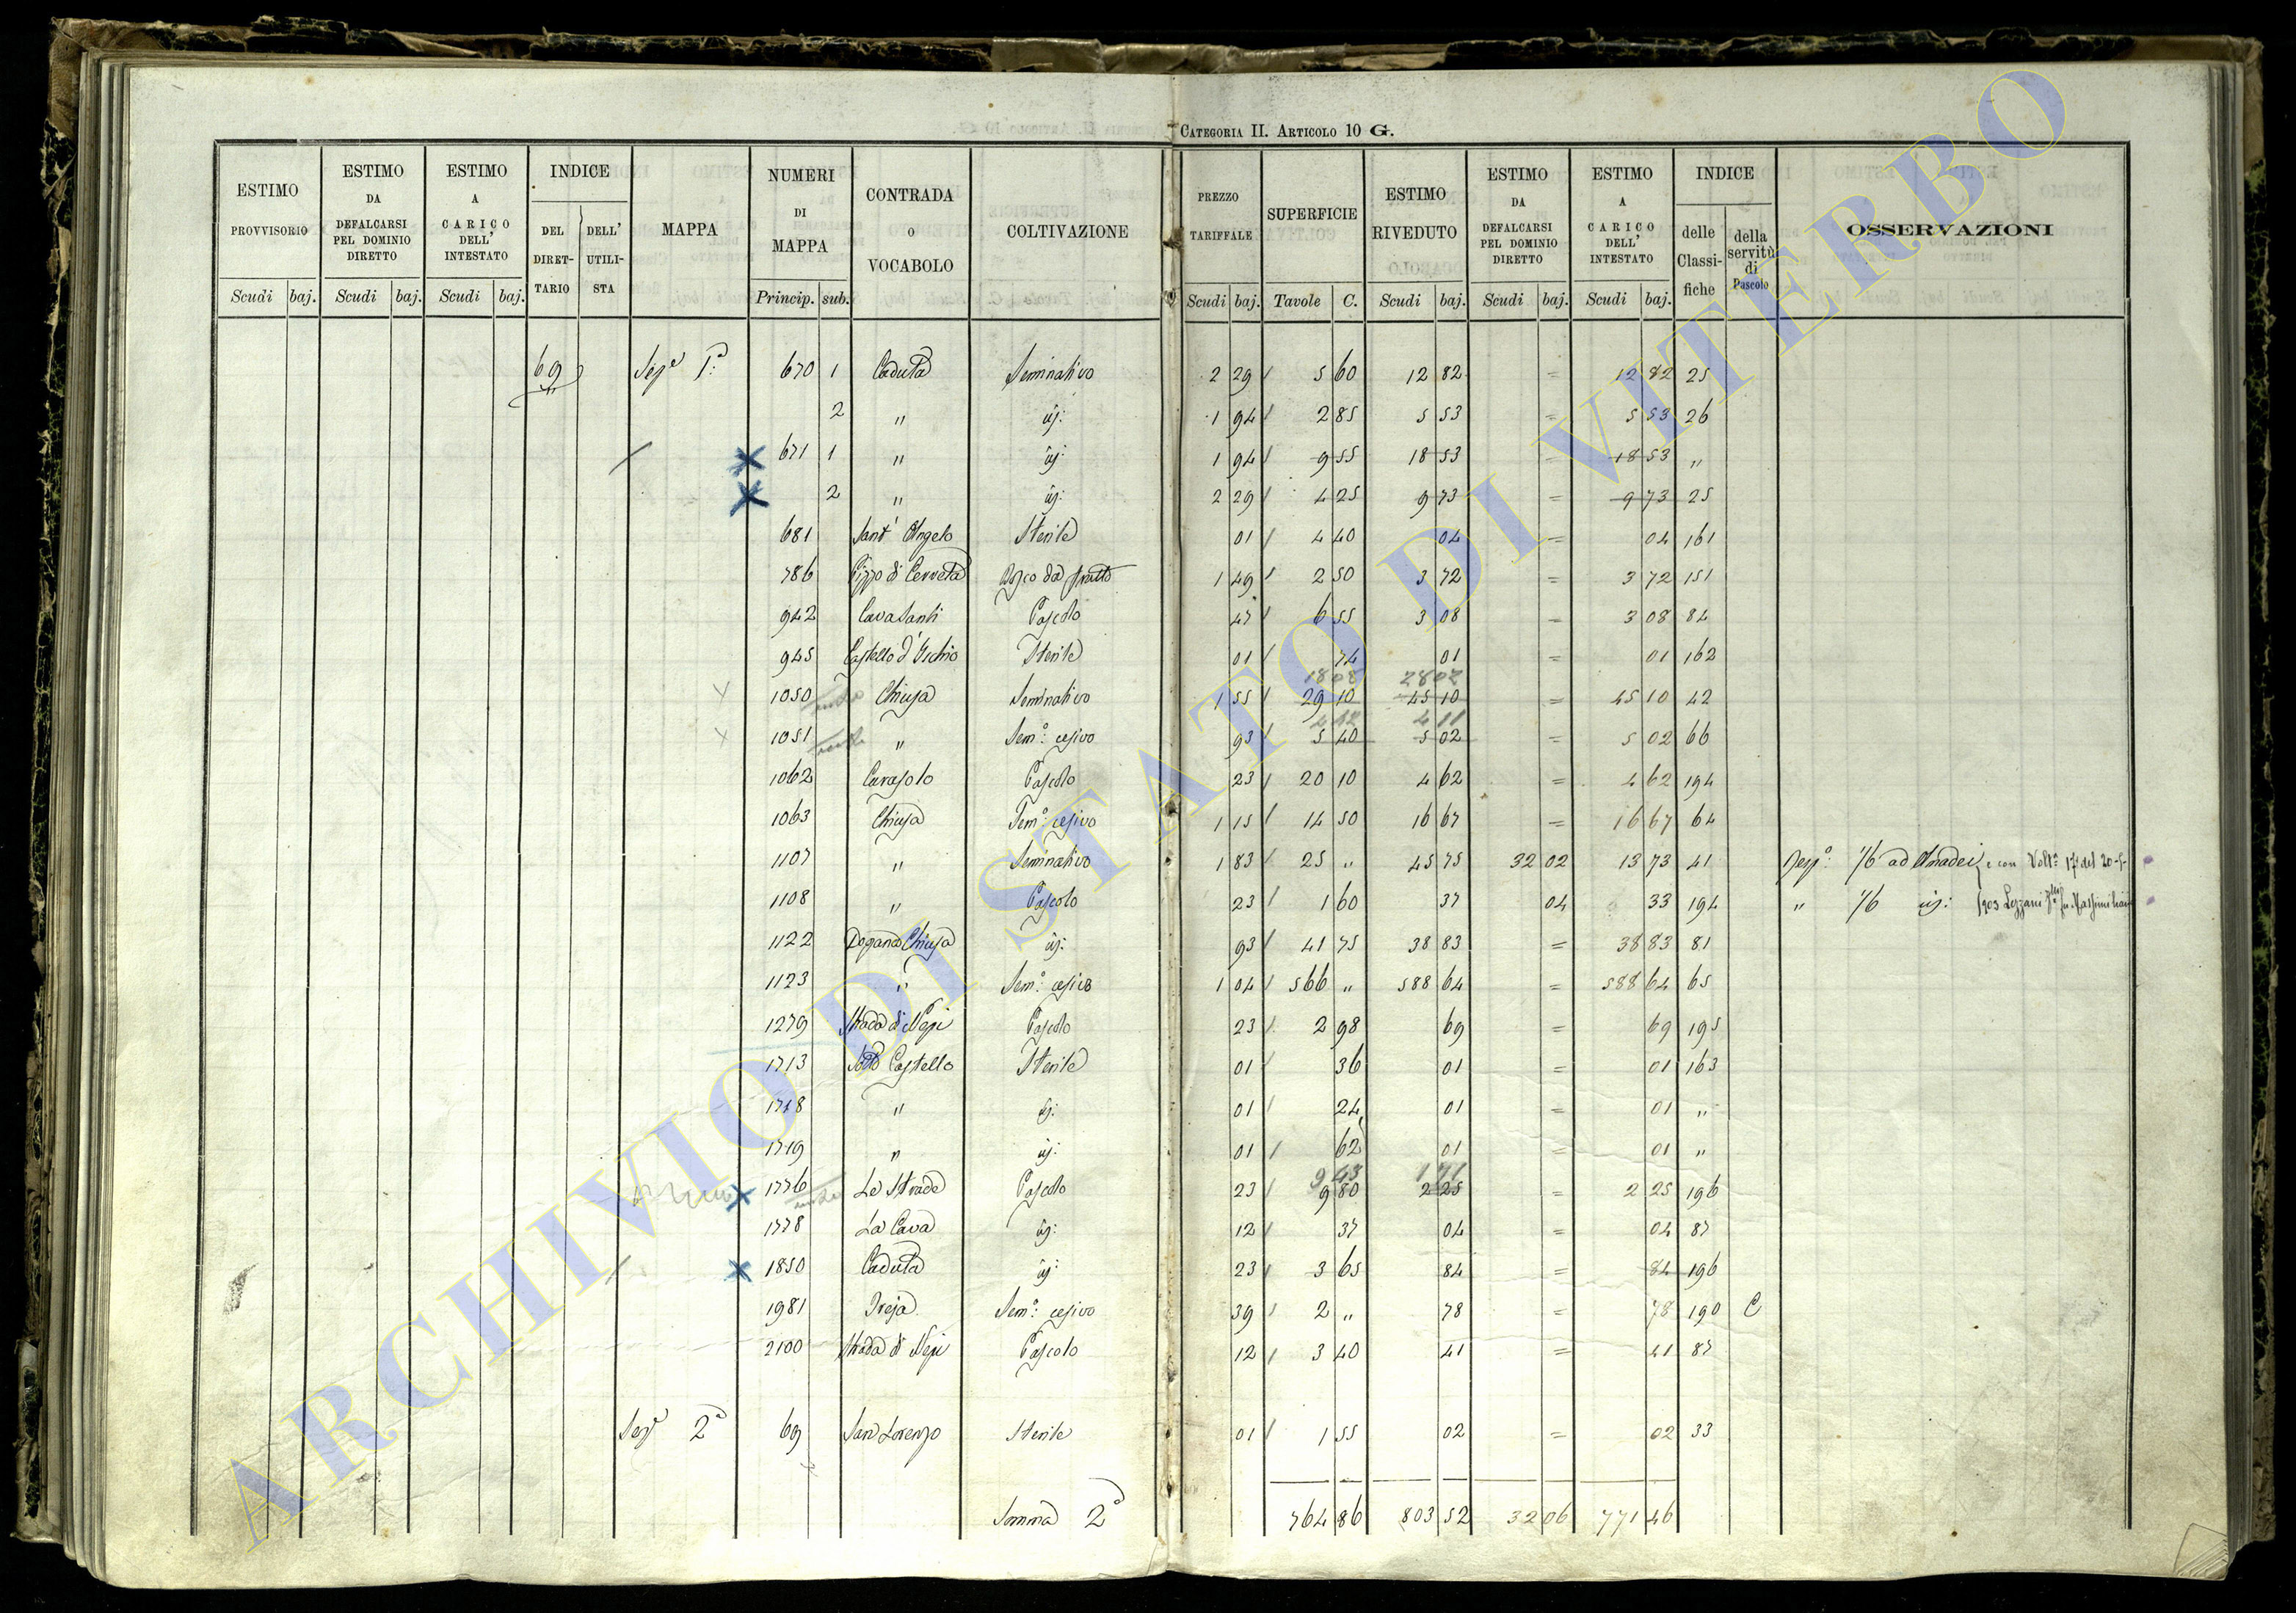 CATEGORIA II. ARTICOLO 10 G.
ESTIMO PROVVISORIO Scudi baj. ESTIMO DA DEFALCARSI PEL DOMINIO DIRETTO Scudi baj. ESTIMO A CARICO DELL' INTESTATO Scudi baj. INDICE DEL DIRET- TARIO DELL' UTILI- STA MAPPA NUMERI DI MAPPA Princip. sub. CONTRADA O VOCABOLO COLTIVAZIONE PREZZO TARIFFALE Scudi baj. SUPERFICIE Tavole C. ESTIMO RIVEDUTO Scudi baj. ESTIMO DA DEFALCARSI PEL DOMINIO DIRETTO Scudi baj. ESTIMO A CARICO DELL' INTESTATO Scudi baj. INDICE delle Classi- fiche della servitù di Pascolo OSSERVAZIONI
69 Sez.e 1.a 670 1 Caduta Seminativo 2 29 5 60 12 82 = 12 82 25
2 " id: 1 94 2 85 5 53 = 5 53 26
671 1 " id: 1 94 9 55 18 53 = 18 53 "
2 " id: 2 29 4 25 9 73 = 9 73 25
681 Sant' Angelo Sterile 01 4 40 04 = 04 161
786 Pizzo di Cerreta Bosco da frutto 1 49 2 50 3 72 = 3 72 151
942 Cavasanti Pascolo 47 6 55 3 08 = 3 08 84
945 Castello d'Ischio Sterile 01 74 01 = 01 162
1808 2802
1050 Chiusa Seminativo 1 55 29 10 45 10 = 45 10 42
442 411
1051 " Sem.o cesivo 93 5 40 5 02 = 5 02 66
1062 Cerasolo Pascolo 23 20 10 4 62 = 4 62 194
1063 Chiusa Sem.o cesivo 1 15 14 50 16 67 = 16 67 64
1107 " Seminativo 1 83 25 " 45 75 32 02 13 73 41 1/6 ad Amadei, e con Volt.a 17 del 20-5-
1108 " Pascolo 23 1 60 37 04 33 194 " 1/6 id: 1903 Lezzani fu Massimiliano
1122 Dogana Chiusa id: 93 41 75 38 83 = 38 83 81
1123 " Sem.o cesivo 1 04 566 " 588 64 = 588 64 65
1279 Strada di Nepi Pascolo 23 2 98 69 = 69 195
1713 Sotto Castello Sterile 01 36 01 = 01 163
1718 " id: 01 24 01 = 01 "
1719 " id: 01 62 01 = 01 "
943 171
1776 Le Strade Pascolo 23 9 80 2 25 = 2 25 196
1778 La Cava id: 12 37 04 = 04 87
1850 Caduta id: 23 3 65 84 = 84 196
1981 Ireja Sem.o cesivo 39 2 " 78 = 78 190 C
2100 Strada di Nepi Pascolo 12 3 40 41 = 41 87
Sez.e 2.a 69 San Lorenzo Sterile 01 1 55 02 = 02 33
Somma 2.a 764 86 803 52 32 06 771 46
ARCHIVIO DI STATO DI VITERBO